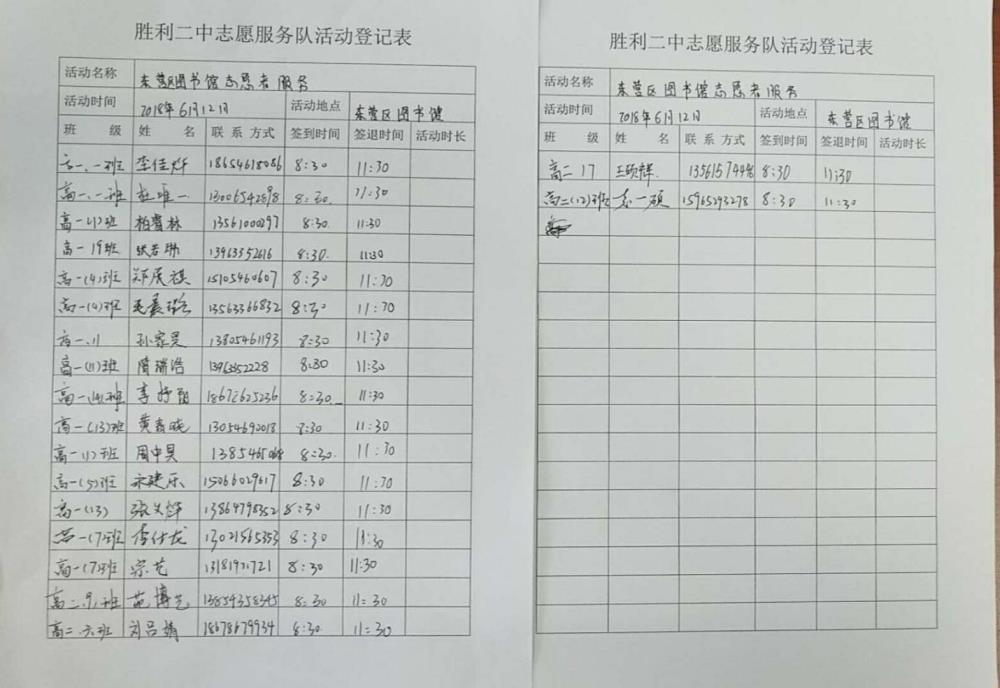 胜利二中志愿服务队活动登记表
活动名称 东营区图书馆志愿者服务
活动时间 2018年6月12日 活动地点 东营区图书馆
班 级 姓 名 联系方式 签到时间 签退时间 活动时长
高一.一班 李佳烨 18654618086 8:30 11:30
高一.一班 唯一 13006542898 8:30 11:30
高一(1)班 柏睿林 13561000297 8:30 11:30
高一19班 13963352616 8:30 11:30
高一(4)班 郑展祺 15105460607 8:30 11:30
高一(4)班 13563366832 8:30 11:30
高一.11 孙家昊 13805461193 8:30 11:30
高一(11)班 隋瑞浩 13963352228 8:30 11:30
高一 班 李 8:30 11:30
高一(13)班 黄 晓 13054692018 8:30 11:30
高一(1)班 周中昊 8:30 11:30
高一(5)班 宋建乐 15066029617 8:30 11:30
高一(13) 张 烨 13864798352 8:30 11:30
高一(7)班 李仕龙 13021565353 8:30 11:30
高一(7)班 宗艺 8:30 11:30
高二.九.班 范博艺 13854358345 8:30 11:30
高二.六班 刘吕婧 18678679934 8:30 11:30
胜利二中志愿服务队活动登记表
活动名称 东营区图书馆志愿者服务
活动时间 2018年6月12日 活动地点 东营区图书馆
班 级 姓 名 联系方式 签到时间 签退时间 活动时长
高二 17 王硕 8:30 11:30
高二(12)班 袁一硕 15965293278 8:30 11:30